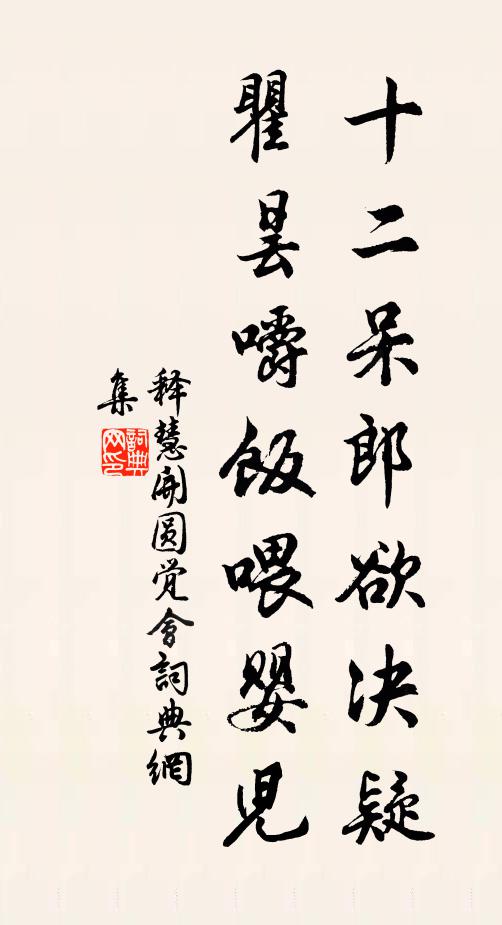 十二呆郎欲決疑
瞿曇嚼飯喂嬰児
释慧開圆觉會詞典網
集
詞典
网印